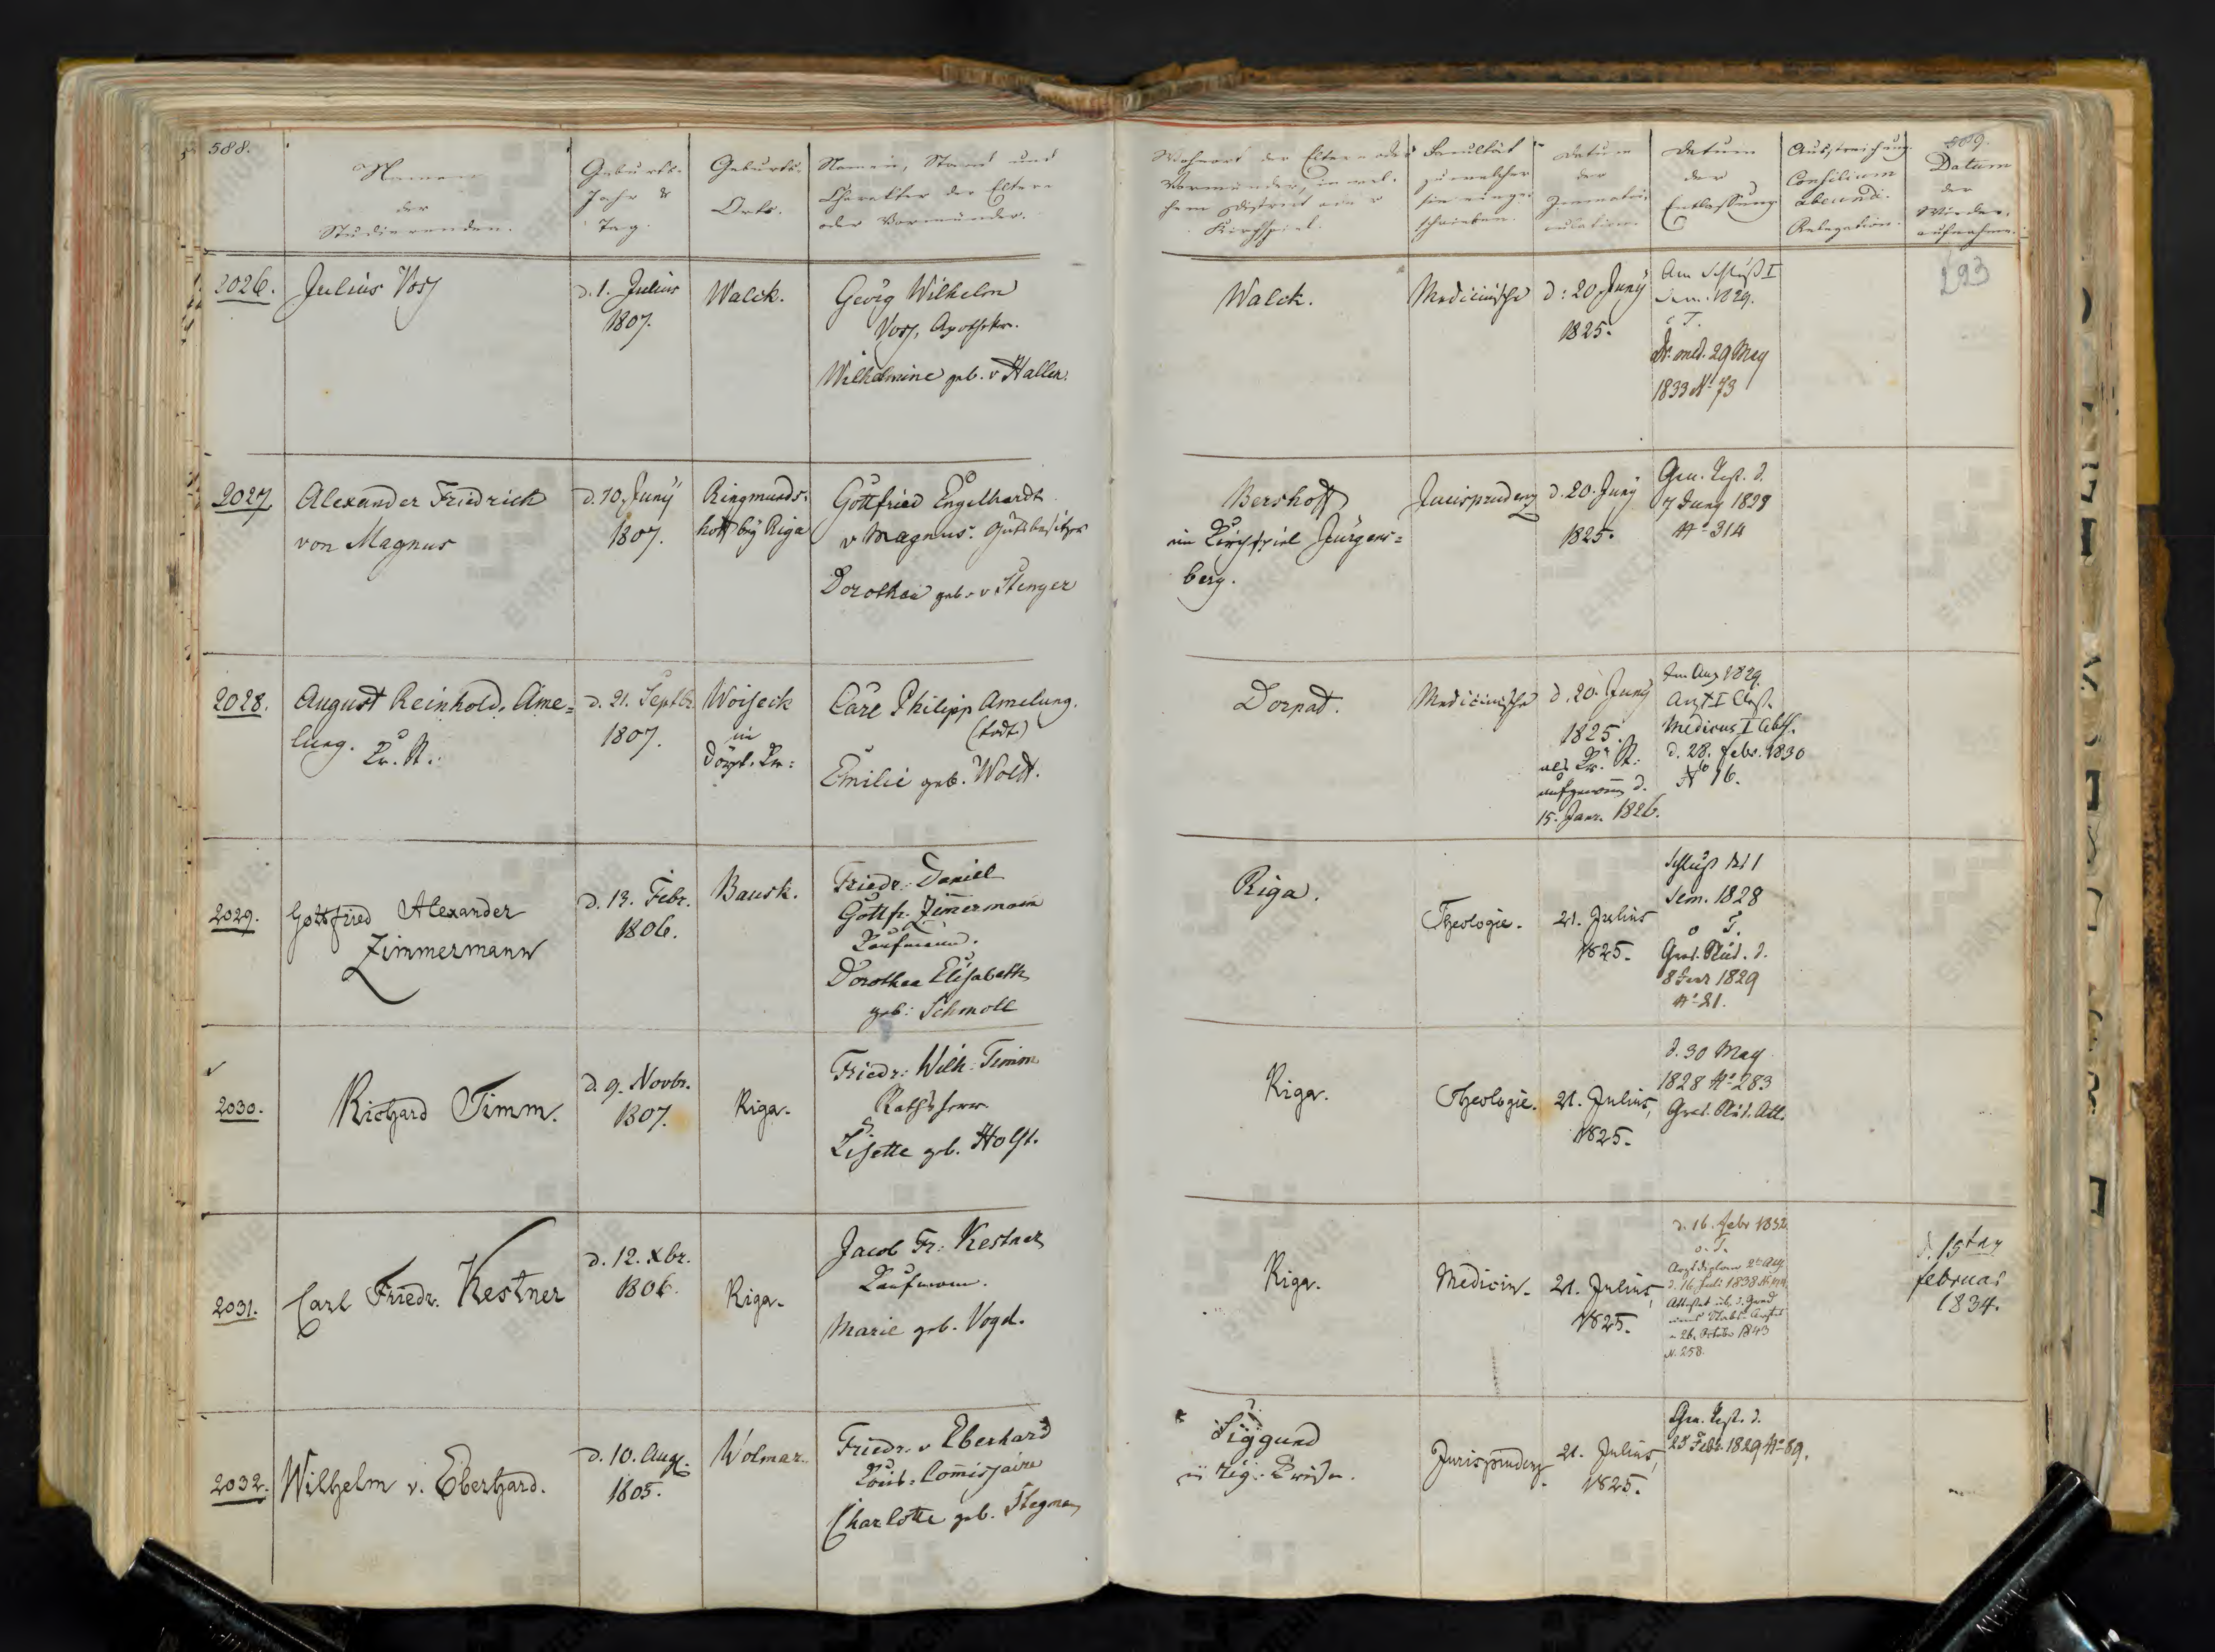 588.
Namen
der
Studierenden.
Geburts-
Jahr &
Tag.
Geburts-
Orte.
Namen, Stand und
Charakter der Eltern
oder Vormünder.
Wohnort der Eltern oder
Vormünder, in wel-
chem District oder
Kirchspiel.
Facultät
zu welcher
sie einge-
schrieben.
Datum
der
Immatri-
culation.
Datum
der
Entlassung
Ausstreichung.
Consilium
abeundi.
Relegation.
589.
Datum
der
Wieder-
aufnahme.
293
2026.
Julius Voss
d. 1. Julius
1807.
Walck.
Georg Wilhelm
Voss, Apotheker.
Wilhelmine geb. v Haller.
Walck.
Medicinische
d: 20 Juny
1825.
Am Schluß I
Sem. 1829.
o. T.
Dr. med. 29 May
1833 No 73
2027.
Alexander Friedrich
von Magnus
d. 10. Juny
1807.
Ringmunds-
hoff bey Riga
Gottfried Engelhardt
v Magnus. Gutsbesitzer
Dorothea geb. v Stenger
Bershoff
im Kirchspiel Jürgens=
berg.
Jurisprudenz
d. 20. Juny
1825.
Gra. Test. d.
7 Juny 1828
No 314
2028.
August Reinhold Ame=
lung. Kr. St.
d. 21. Septbr
1807.
Woiseck
im
Dörpt. Kr:
Carl Philipp Amelung.
(todt)
Emilie geb. Woldt.
Dorpat.
Medicinische
d. 20. Juny
1825.
als Kr. St.
aufgenom d.
15. Janr. 1826.
Im Aug 1829.
Arzt I Abth.
Medicus I Abth.
d. 28. Febr. 1830
No 16.
2029.
Gottfried Alexander
Zimmermann
d. 13. Febr.
1806.
Bausk.
Friedr: Daniel
Gottfr. Zimermann
Kaufmann.
Dorothea Elisabeth
geb: Schmoll
Riga.
Theologie.
21. Julius
1825.
Schluß des I
Sem. 1828
o T.
Grad. Stud. d.
8 Janr 1829
No 21.
2030.
Richard Timm.
d. 9. Novbr.
1807.
Riga.
Friedr: Wilh: Timm
Rathsherr
Lisette geb. Holst.
Riga.
Theologie.
21. Julius,
1825.
d. 30 May
1828 No 283
Grad. Stud. Att.
2031.
Carl Friedr. Kestner
d. 12. Xbr.
1806.
Riga.
Jacob Fr: Kestner
Kaufmann.
Marie geb. Vogd.
Riga.
Medicin.
21. Julius,
1825.
d. 16. Febr 1832
o. T.
Arztdiplom 2te Abth
Attestat üb. d. Grad
26. October 1843
N. 258.
d. 15ten
Februar
1834.
2032.
Wilhelm v. Eberhard.
d. 10. Aug.
1805.
Wolmar.
Friedr. v Eberhard
Comissaire
Charlotte geb. Stegman
Siggund
im Rig: Kreise.
Jurisprudenz.
21. Julius,
1825.
Gra. Test. d.
25 Febr. 1829 No 89.